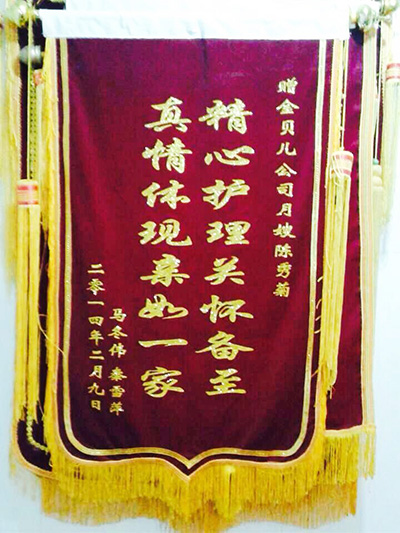 赠金贝儿公司月嫂陈秀菊
精心护理关怀备至
真情体现亲如一家
马冬伟 秦雪萍
二零一四年二月九日